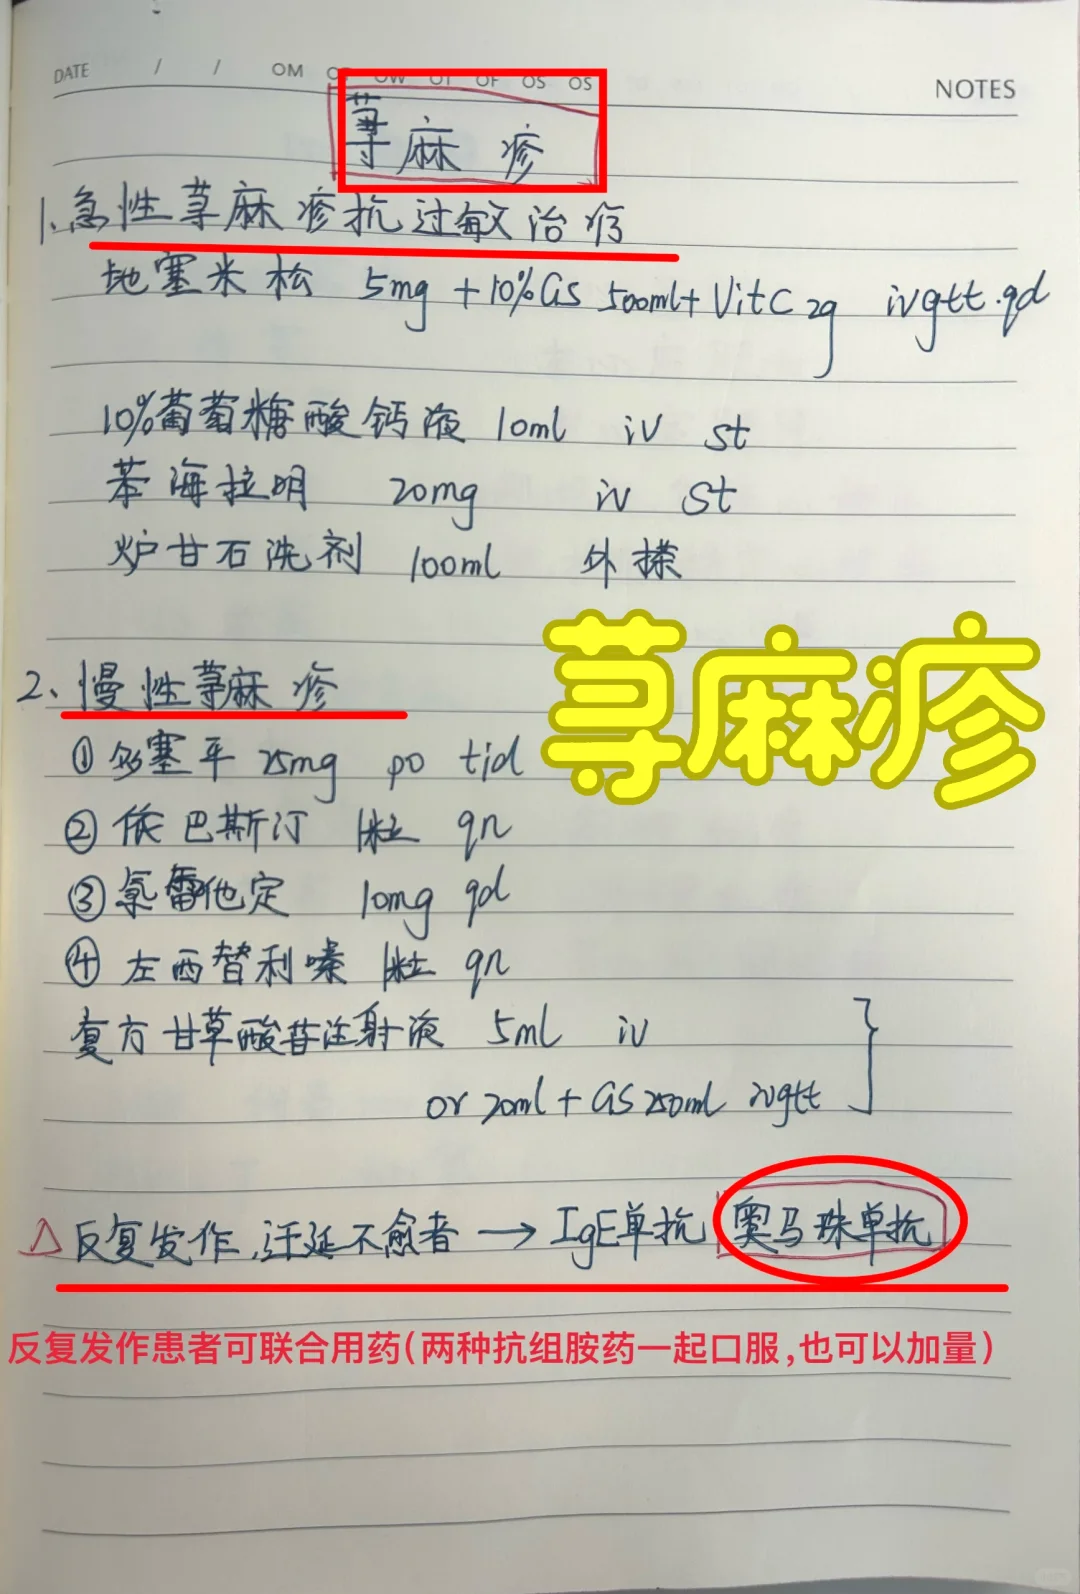 DATE / / OM OT OW OT OF OS OS
NOTES
荨麻疹
1.急性荨麻疹抗过敏治疗
地塞米松 5mg+10%GS 500ml+VitC 2g ivgtt.qd
10%葡萄糖酸钙液 10ml iv st
苯海拉明 20mg iv st
炉甘石洗剂 100ml 外搽
荨麻疹
2、慢性荨麻疹
①多塞平 25mg po tid
②依巴斯汀 1粒 qn
③氯雷他定 10mg qd
④左西替利嗪 1粒 qn
复方甘草酸苷注射液 5ml iv
or 20ml+GS 250ml ivgtt
△反复发作,迁延不愈者→IgE单抗 奥马珠单抗
反复发作患者可联合用药(两种抗组胺药一起口服,也可以加量)